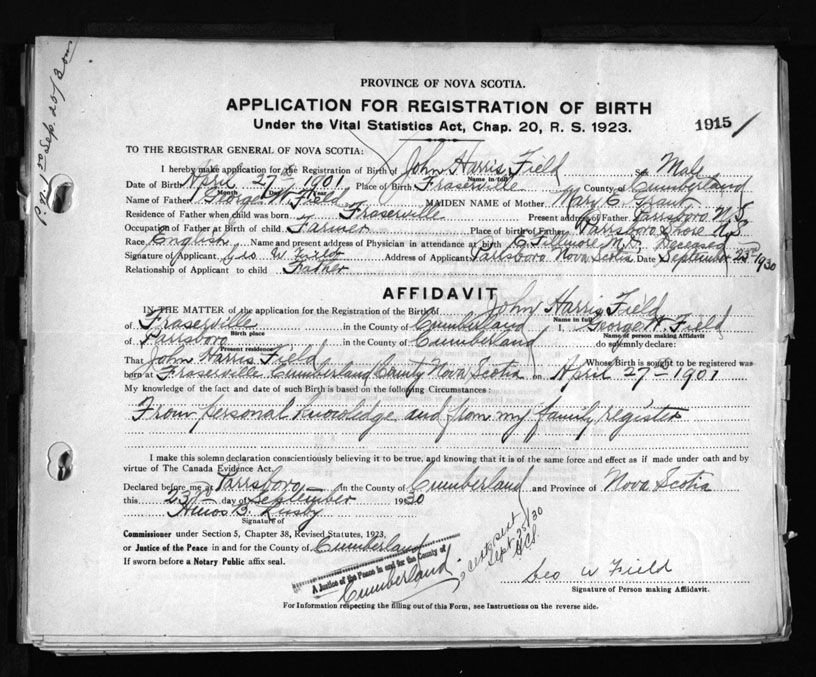 P.N. 50 Sep. 20/30
PROVINCE OF NOVA SCOTIA.
APPLICATION FOR REGISTRATION OF BIRTH
Under the Vital Statistics Act, Chap. 20, R. S. 1923.
1915
TO THE REGISTRAR GENERAL OF NOVA SCOTIA:
I hereby make application for the Registration of Birth of John Harris Field Male
Name in full
Date of Birth April 27th 1901 Place of Birth Fraserville County of Cumberland
Month Day Year
Name of Father George W. Field MAIDEN NAME of Mother Mary C. Grant
Residence of Father when child was born Fraserville Present address of Father Parrsboro N.S.
Occupation of Father at Birth of child Farmer Place of birth of Father Parrsboro Shore N.S.
Race English Name and present address of Physician in attendance at birth Fillmore M.D. Deceased
Signature of Applicant Geo W Field Address of Applicant Parrsboro Nova Scotia Date September 23rd 1930
Relationship of Applicant to child Father
AFFIDAVIT
IN THE MATTER of the application for the Registration of the Birth of John Harris Field
Name in full
of Fraserville in the County of Cumberland I, George W. Field
Birth place Name of person making Affidavit
of Parrsboro in the County of Cumberland do solemnly declare:
Present residence
That John Harris Field Whose Birth is sought to be registered was
born at Fraserville Cumberland County Nova Scotia on April 27th 1901
My knowledge of the fact and date of such Birth is based on the following Circumstances:
From personal knowledge and from my family register
I make this solemn declaration conscientiously believing it to be true, and knowing that it is of the same force and effect as if made under oath and by
virtue of The Canada Evidence Act.
Declared before me at Parrsboro in the County of Cumberland and Province of Nova Scotia
this 23rd day of September 1930
Amos B. Lusby
Signature of
Commissioner under Section 5, Chapter 38, Revised Statutes, 1923.
or Justice of the Peace in and for the County of Cumberland
If sworn before a Notary Public affix seal.
A Justice of the Peace in and for the County of
Cumberland
Cert sent
Sept 25/30
Geo W Field
Signature of Person making Affidavit.
For Information respecting the filling out of this Form, see Instructions on the reverse side.